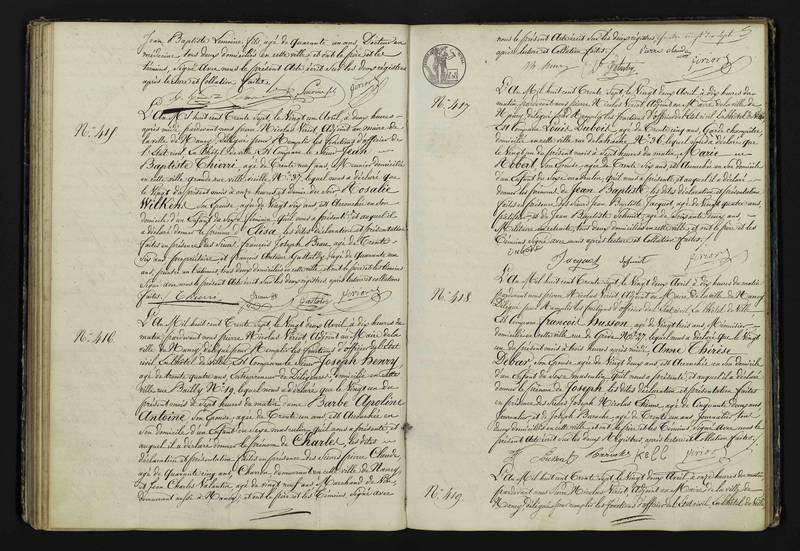 Jean Baptiste Lemoine fils, agé de quarante un ans, Docteur en
médecine, tous deux domiciliés en cette ville; et ont le père et les
témoins, signé avec nous le présent Acte écrit sur les deux registres
après lecture et Collation faites.
N.º 415.
L'An Mil huit cent Trente Sept, le Vingt un Avril, à deux heures
après midi, pardevant nous Pierre Nicolas Noirot Adjoint au maire de
la ville de Nancy, délégué pour Remplir les fonctions d'officier de
l'Etat civil. à l'hôtel de ville. Est Comparu le Sieur Jean
Baptiste Thierri, agé de Trente neuf ans, Menuisier domicilié
en cette ville, grande rue ville vieille, N.º 37, lequel nous a déclaré que
le Vingt du présent mois à onze heures et demie du soir Rosalie
Wilkehe, Son Epouse, agée de Vingt six ans, est Accouchée en son
domicile d'un Enfant du Sexe féminin, qu'il nous a présenté, et auquel il
a déclaré donner le prénom d'Elisa, les dites déclaration et présentation
faites en présence des Sieurs François Joseph agé de Trente
Six ans, propriétaire, et françois Antoine agé de quarante un
ans, tous deux domiciliés en cette ville, et ont le père et les témoins
Signé avec nous le présent Acte écrit sur les deux registres, après lecture et collation
faites. Thierri Noirot
N.º 416.
L'An Mil huit cent Trente Sept, le Vingt deux Avril, à dix heures du
matin, pardevant nous Pierre Nicolas Noirot, Adjoint au Maire de la
ville de Nancy, délégué pour Remplir les fonctions d'officier de l'Etat
civil. à l'hôtel de ville. Est Comparu le Sieur Joseph Henry,
agé de trente quatre ans, Entrepreneur de Diligences, domicilié en cette
ville, rue Bailly N.º 19, lequel nous a déclaré que le Vingt un du
présent mois à Sept heures du matin, dame Barbe Apoline
Antoine, Son Epouse, agée de Trente un ans, est Accouchée en
Son domicile d'un Enfant du Sexe masculin, qu'il nous a présenté, et
auquel il a déclaré donner le prénom de Charles, les dites
déclaration et présentation faites en présence des Sieurs pierre Claude,
agé de quarante cinq ans, Charron, demeurant en cette ville de Nancy
et Jean Charles Valentin, agé de vingt neuf ans, Marchand de
demeurant aussi à Nancy; et ont le père et les Témoins, Signé avec
nous le présent Acte écrit sur les deux registres,
après lecture et Collation faites. pierre claude
Noirot
N.º 417
L'An Mil huit cent Trente Sept, le Vingt deux Avril, à dix heures du
matin, pardevant nous pierre Nicolas Noirot Adjoint au Maire de la ville de
Nancy, délégué pour Remplir les fonctions d'officier de l'Etat civil. à l'hôtel de Ville
Est Comparu Louis Dubois, agé de trente cinq ans, Garde champêtre,
domicilié en cette ville, rue N.º 36, lequel nous a déclaré que
le Vingt du présent mois, à huit heures du matin, Marie
Robert, Son Epouse, agée de Trente six ans, est Accouchée en son domicile
d'un Enfant du Sexe masculin, qu'il nous a présenté, et auquel il a déclaré
donner les prénoms de Jean Baptiste, les dites déclaration et présentation
faites en présence des Sieurs Jean Baptiste Jacquot, agé de Vingt quatre ans,
et de Jean Baptiste Schmit, agé de Soixante deux ans,
Militaire en retraite, tous deux domiciliés en cette ville; et ont le père et les
témoins Signé avec nous après lecture et Collation faites.
Dubois Jacquot Schmit Noirot
N.º 418.
L'An Mil huit cent Trente Sept, le Vingt deux Avril, à dix heures du matin
pardevant nous pierre Nicolas Noirot Adjoint au Maire de la ville de Nancy
délégué pour Remplir les fonctions d'officier de l'Etat civil. à l'hôtel de Ville
Est Comparu françois Busson, agé de Vingt trois ans, Menuisier,
domicilié en cette ville, rue de Grève N.º 27, lequel nous a déclaré que le Vingt
un du présent mois à trois heures après midi, Anne Thérèse
Son Epouse, agée de Vingt deux ans, est Accouchée en Son domicile
d'un Enfant du Sexe masculin, qu'il nous a présenté, et auquel il a déclaré
donner le prénom de Joseph, les dites déclaration et présentation faites
en présence des Sieurs Joseph Nicolas agé de Cinquante deux ans,
Journalier, et de Joseph agé de Trente un ans, Journalier, tous
deux domiciliés en cette ville, et ont le père et les Témoins Signé avec nous le
présent Acte écrit Sur les deux Registres, après lecture et Collation faites.
Busson Noirot
N.º 419
L'An Mil huit cent Trente Sept, le Vingt deux Avril, à onze heures du matin
pardevant nous Pierre Nicolas Noirot, Adjoint au Maire de la ville de
Nancy, délégué pour remplir les fonctions d'officier de l'Etat civil. à l'hôtel de Ville